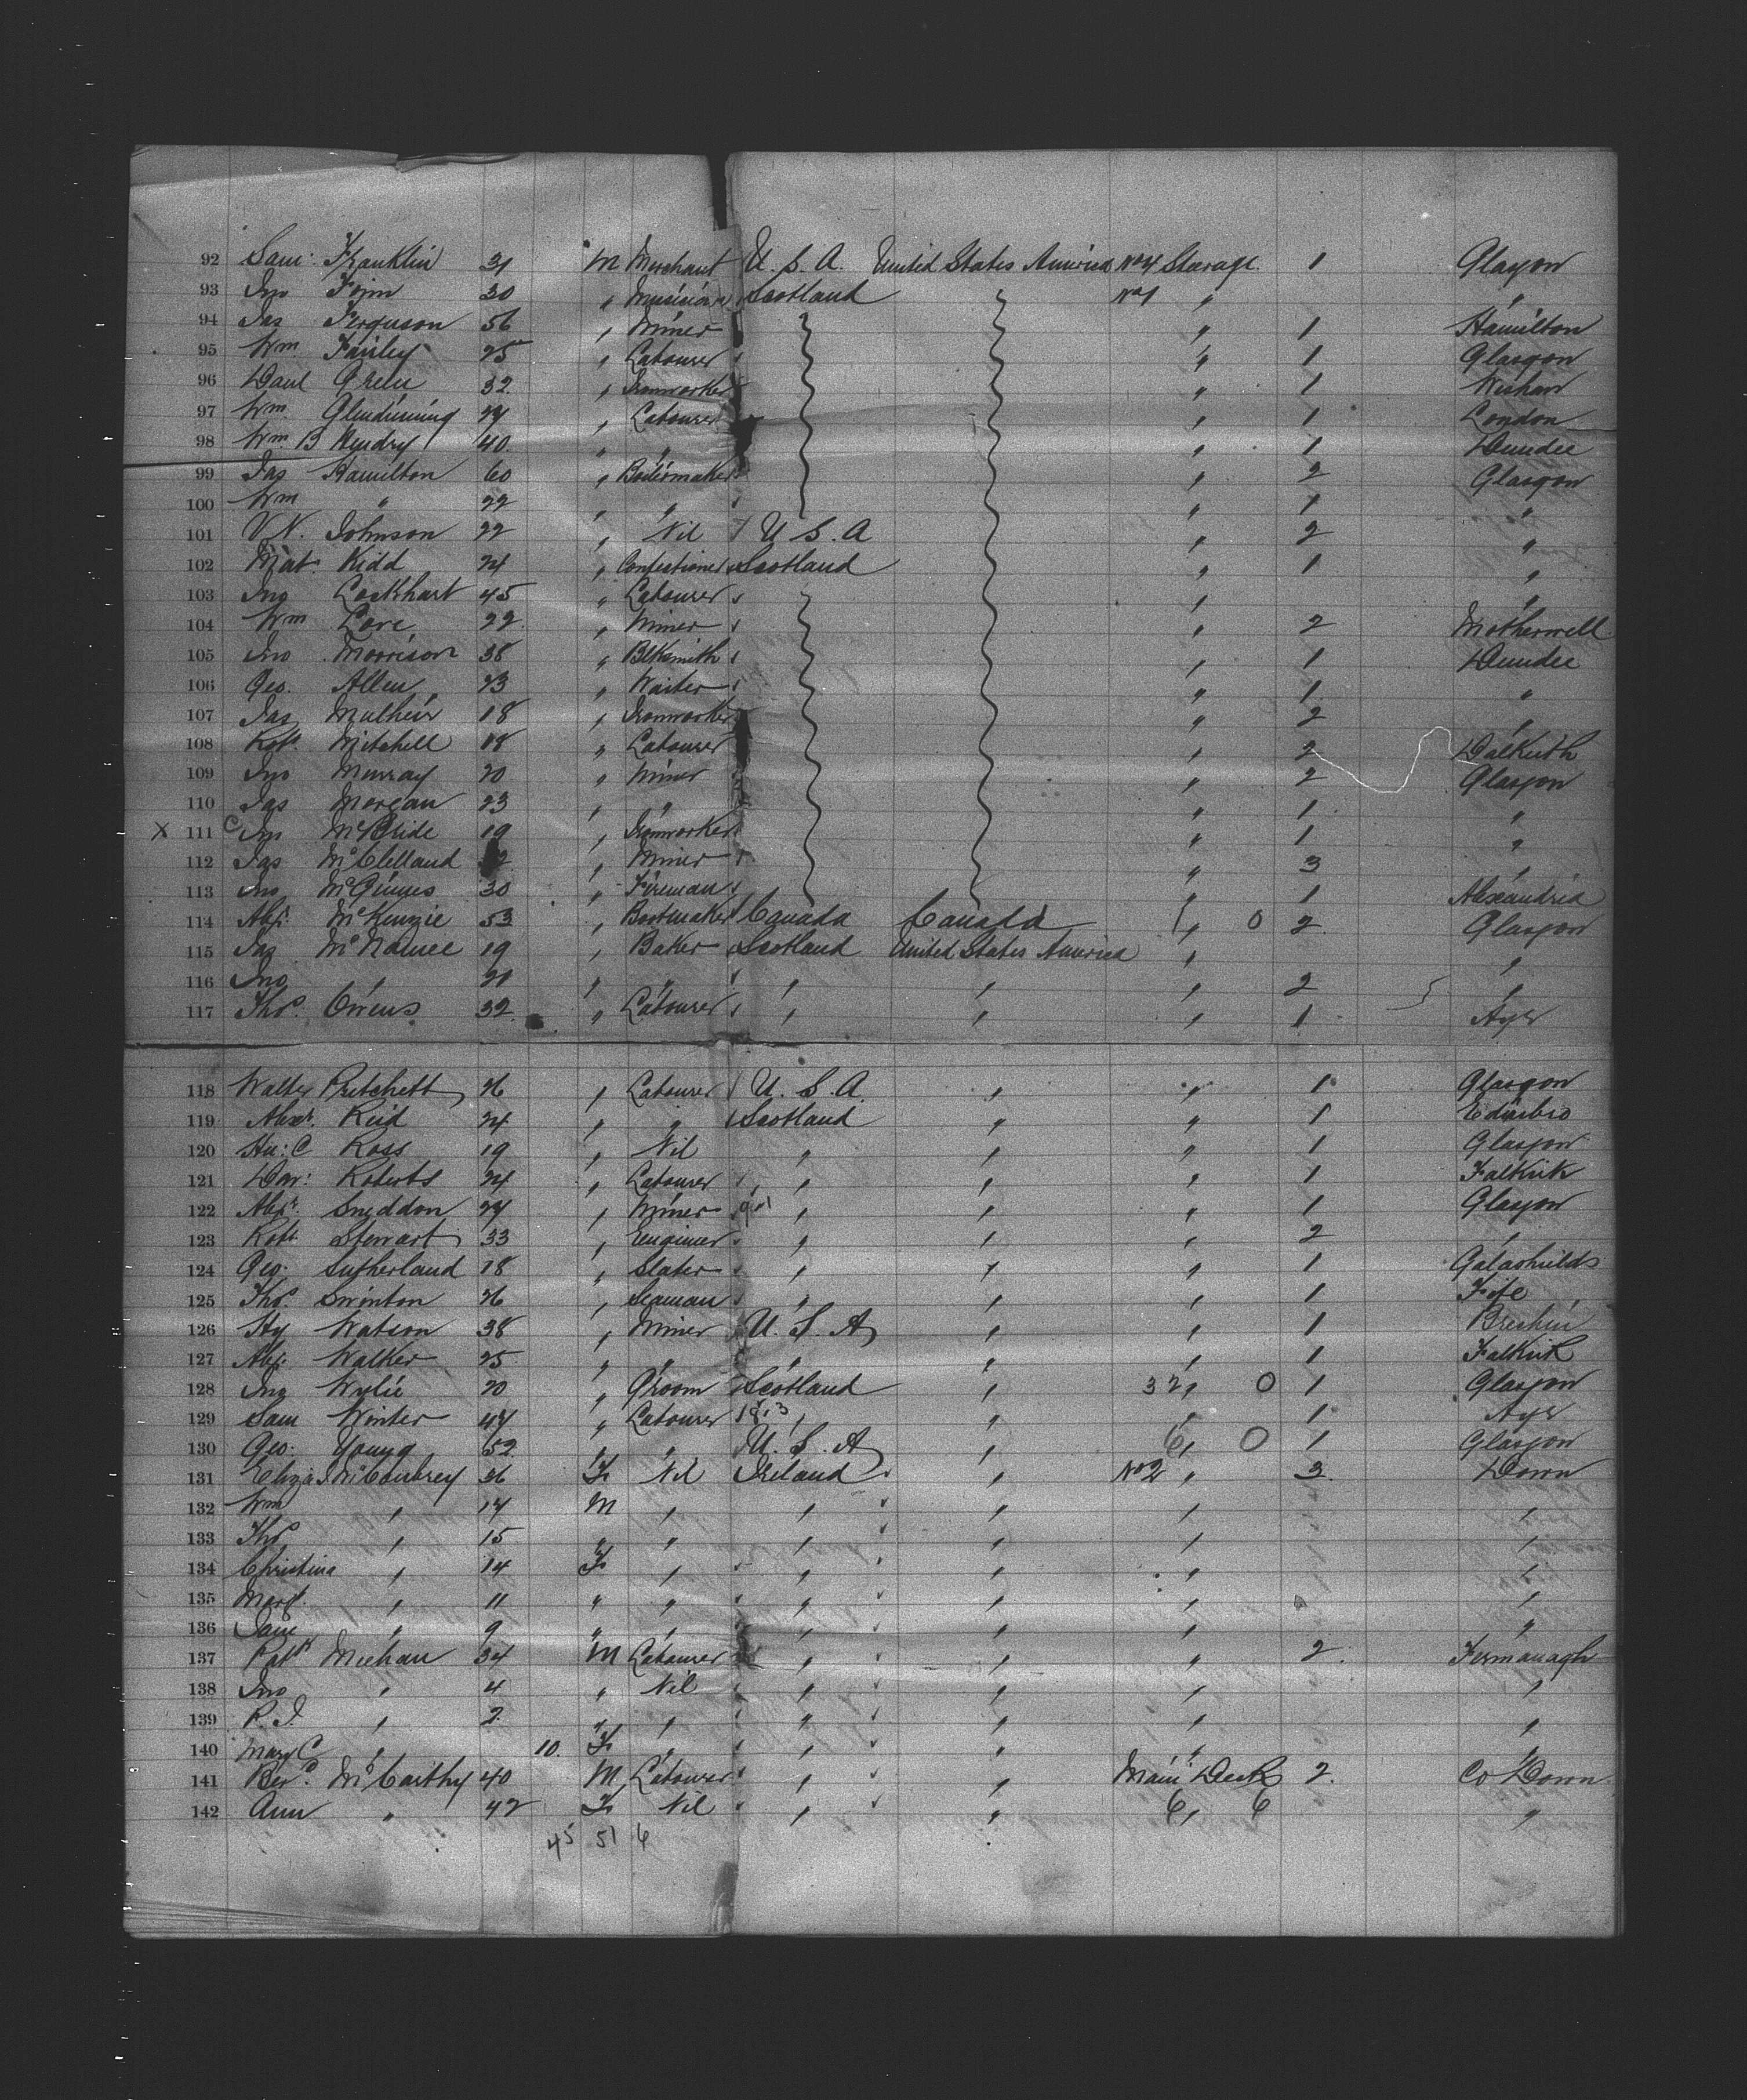 92 Sam: Franklin 31 M Merchant U. S. A. United States America No 4 Steerage 1 Glasgow
93 Jno 30 " Musician Scotland No 1 " "
94 Jas Ferguson 56 " Miner " 1 Hamilton
95 Wm. Fairley 25 " Labourer " 1 Glasgow
96 Danl Green 32 " Ironworker " 1 Wishaw
97 Wm. Glendinning 27 " Labourer " 1 London
98 Wm B Hendry 40 " " " 1 Dundee
99 Jas Hamilton 60 " Boilermaker " 2 Glasgow
100 Wm " 22 " " " 1 "
101 V. N. Johnson 22 " Nil U S. A " 2 "
102 Mat: Kidd 24 " Confectioner Scotland " 1 "
103 Jno Lockhart 45 " Labourer " "
104 Wm Love 22 " Miner " 2 Motherwell
105 Jno Morrison 38 " Blksmith " 1 Dundee
106 Geo. Allen 23 " Waiter " 1 "
107 Jas Mulheir 18 " Ironworker " 2 "
108 Robt. Mitchell 18 " Labourer " 2 Dalkeith
109 Jno Murray 20 " Miner " 2 Glasgow
110 Jas Morgan 23 " " " 1 "
X 111 C Jno McBride 19 " Ironworker " 1 "
112 Jas McClelland " Miner " 3 "
113 Jno McGinnes 30 " Fireman " 1 Alexandria
114 Alex. McKenzie 53 " Bootmaker Canada Canada " 0 2 Glasgow
115 Jas McNamee 19 " Baker Scotland United States America " "
116 Jno " 21 " " " " " 2 "
117 Thos. Owens 32 " Labourer " " " 1 Ayr
118 Walter Pritchett 26 " Labourer U. S. A. " " 1 Glasgow
119 Alexr. Reid 24 " " Scotland " " 1 Edinbro
120 Hu: C Ross 19 " Nil " " " 1 Glasgow
121 Dav: Roberts 24 " Labourer " " " 1 Falkirk
122 Alexr. Sneddon 27 " Miner " " " 1 Glasgow
123 Robt Stewart 33 " Engineer " " " 2 "
124 Geo. Sutherland 18 " Slater " " " 1 Galashields
125 Thos. Swinton 26 " Seaman " " " 1 Fife
126 Hy Watson 38 " Miner U. S. A " " 1 Brechin
127 Alex. Walker 25 " " " " " 1 Falkirk
128 Jno Wylie 20 " Groom Scotland " 32 " 0 1 Glasgow
129 Sam Winter 47 " Labourer " " " 1 Ayr
130 Geo. Young 52 " " U. S. A " 6 " 0 1 Glasgow
131 Eliza J McCoubrey 36 F Nil Ireland " No 2 " 3 Down
132 Wm " 17 M " " " " "
133 Thos " 15 " " " " " "
134 Christina " 14 F " " " " "
135 Margt. " 11 " " " " " "
136 Jane " 9 " " " " " "
137 Patk Meehan 34 M Labourer " " " 2. Fermanagh
138 Jno " 4 " Nil " " " "
139 P. J. " 2 " " " " " "
140 Mary C " 10. F " " " " "
141 Berd. McCarthy 40 M Labourer " " Main Deck 2. Co Down
142 Ann " 42 F Nil " " 6 " 6 "
45 51 6